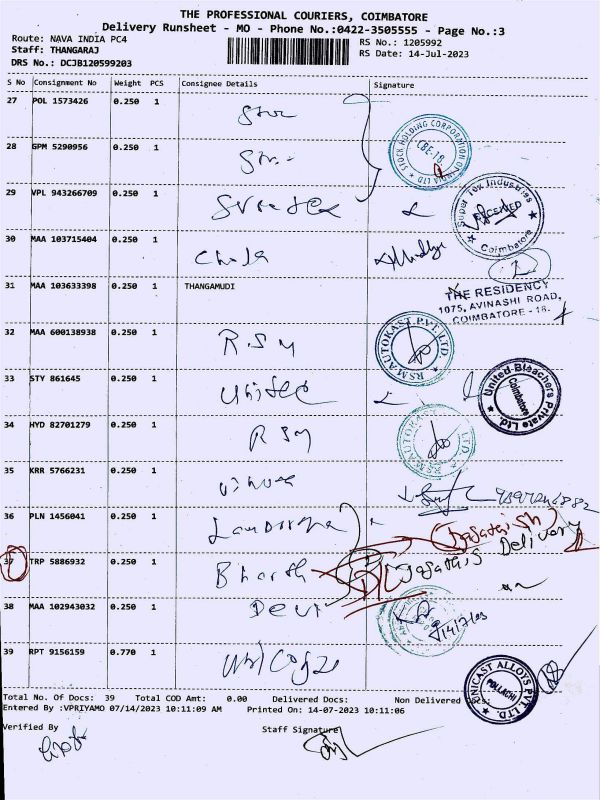 THE PROFESSIONAL COURIERS, COIMBATORE
Delivery Runsheet - MO - Phone No.:0422-3505555 - Page No.:3
Route: NAVA INDIA PC4
RS No.: 1205992
Staff: THANGARAJ
RS Date: 14-Jul-2023
DRS No.: DCJB120599203
S No Consignment No Weight PCS Consignee Details Signature
27 POL 1573426 0.250 1
STOCK HOLDING CORPORATION OF INDIA LTD
CBE-18
28 GPM 5290956 0.250 1
29 VPL 943266709 0.250 1
Super Tex Industries
RECEIVED
Coimbatore
30 MAA 103715404 0.250 1
31 MAA 103633398 0.250 1 THANGAMUDI
THE RESIDENCY
1075, AVINASHI ROAD,
COIMBATORE - 18.
32 MAA 600138938 0.250 1 RSM
RSM AUTOKAST PVT. LTD.
33 STY 861645 0.250 1 United
United Bleachers Private Ltd.
Coimbatore
34 HYD 82701279 0.250 1 RSM
RSM AUTOKAST PVT. LTD.
35 KRR 5766231 0.250 1
36 PLN 1456041 0.250 1
37 TRP 5886932 0.250 1 Bharth
Jagathis Delivery
38 MAA 102943032 0.250 1 Devi
39 RPT 9156159 0.770 1
UNICAST ALLOYS PVT. LTD.
POLLACHI
Total No. Of Docs: 39 Total COD Amt: 0.00 Delivered Docs: Non Delivered Docs:
Entered By :VPRIYAMO 07/14/2023 10:11:09 AM Printed On: 14-07-2023 10:11:06
Verified By
Staff Signature